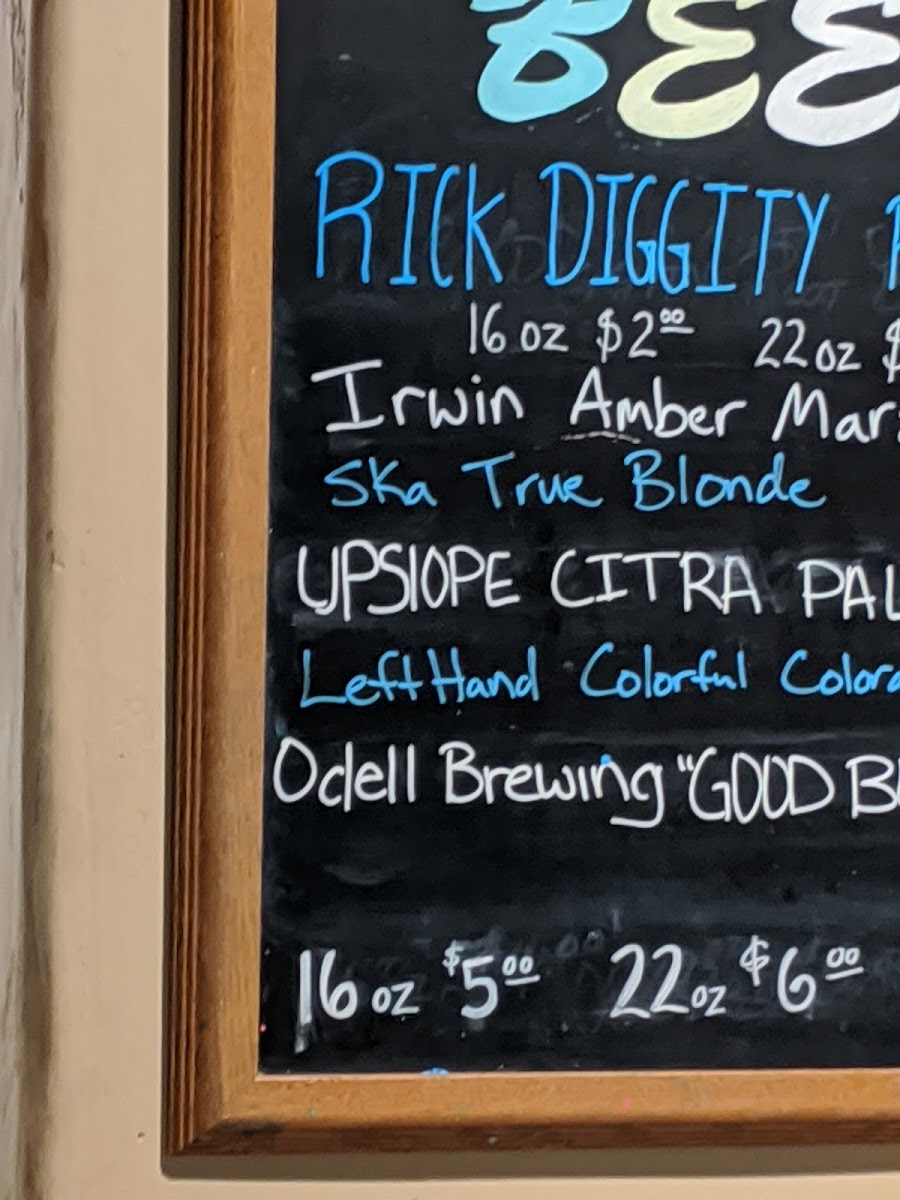 BEE
RICK DIGGITY
16 oz $2.00 22 oz $
Irwin Amber Mar
Ska True Blonde
UPSlOPE CITRA PAL
Left Hand Colorful Colora
Odell Brewing "GOOD B
16 oz $5.00 22 oz $6.00